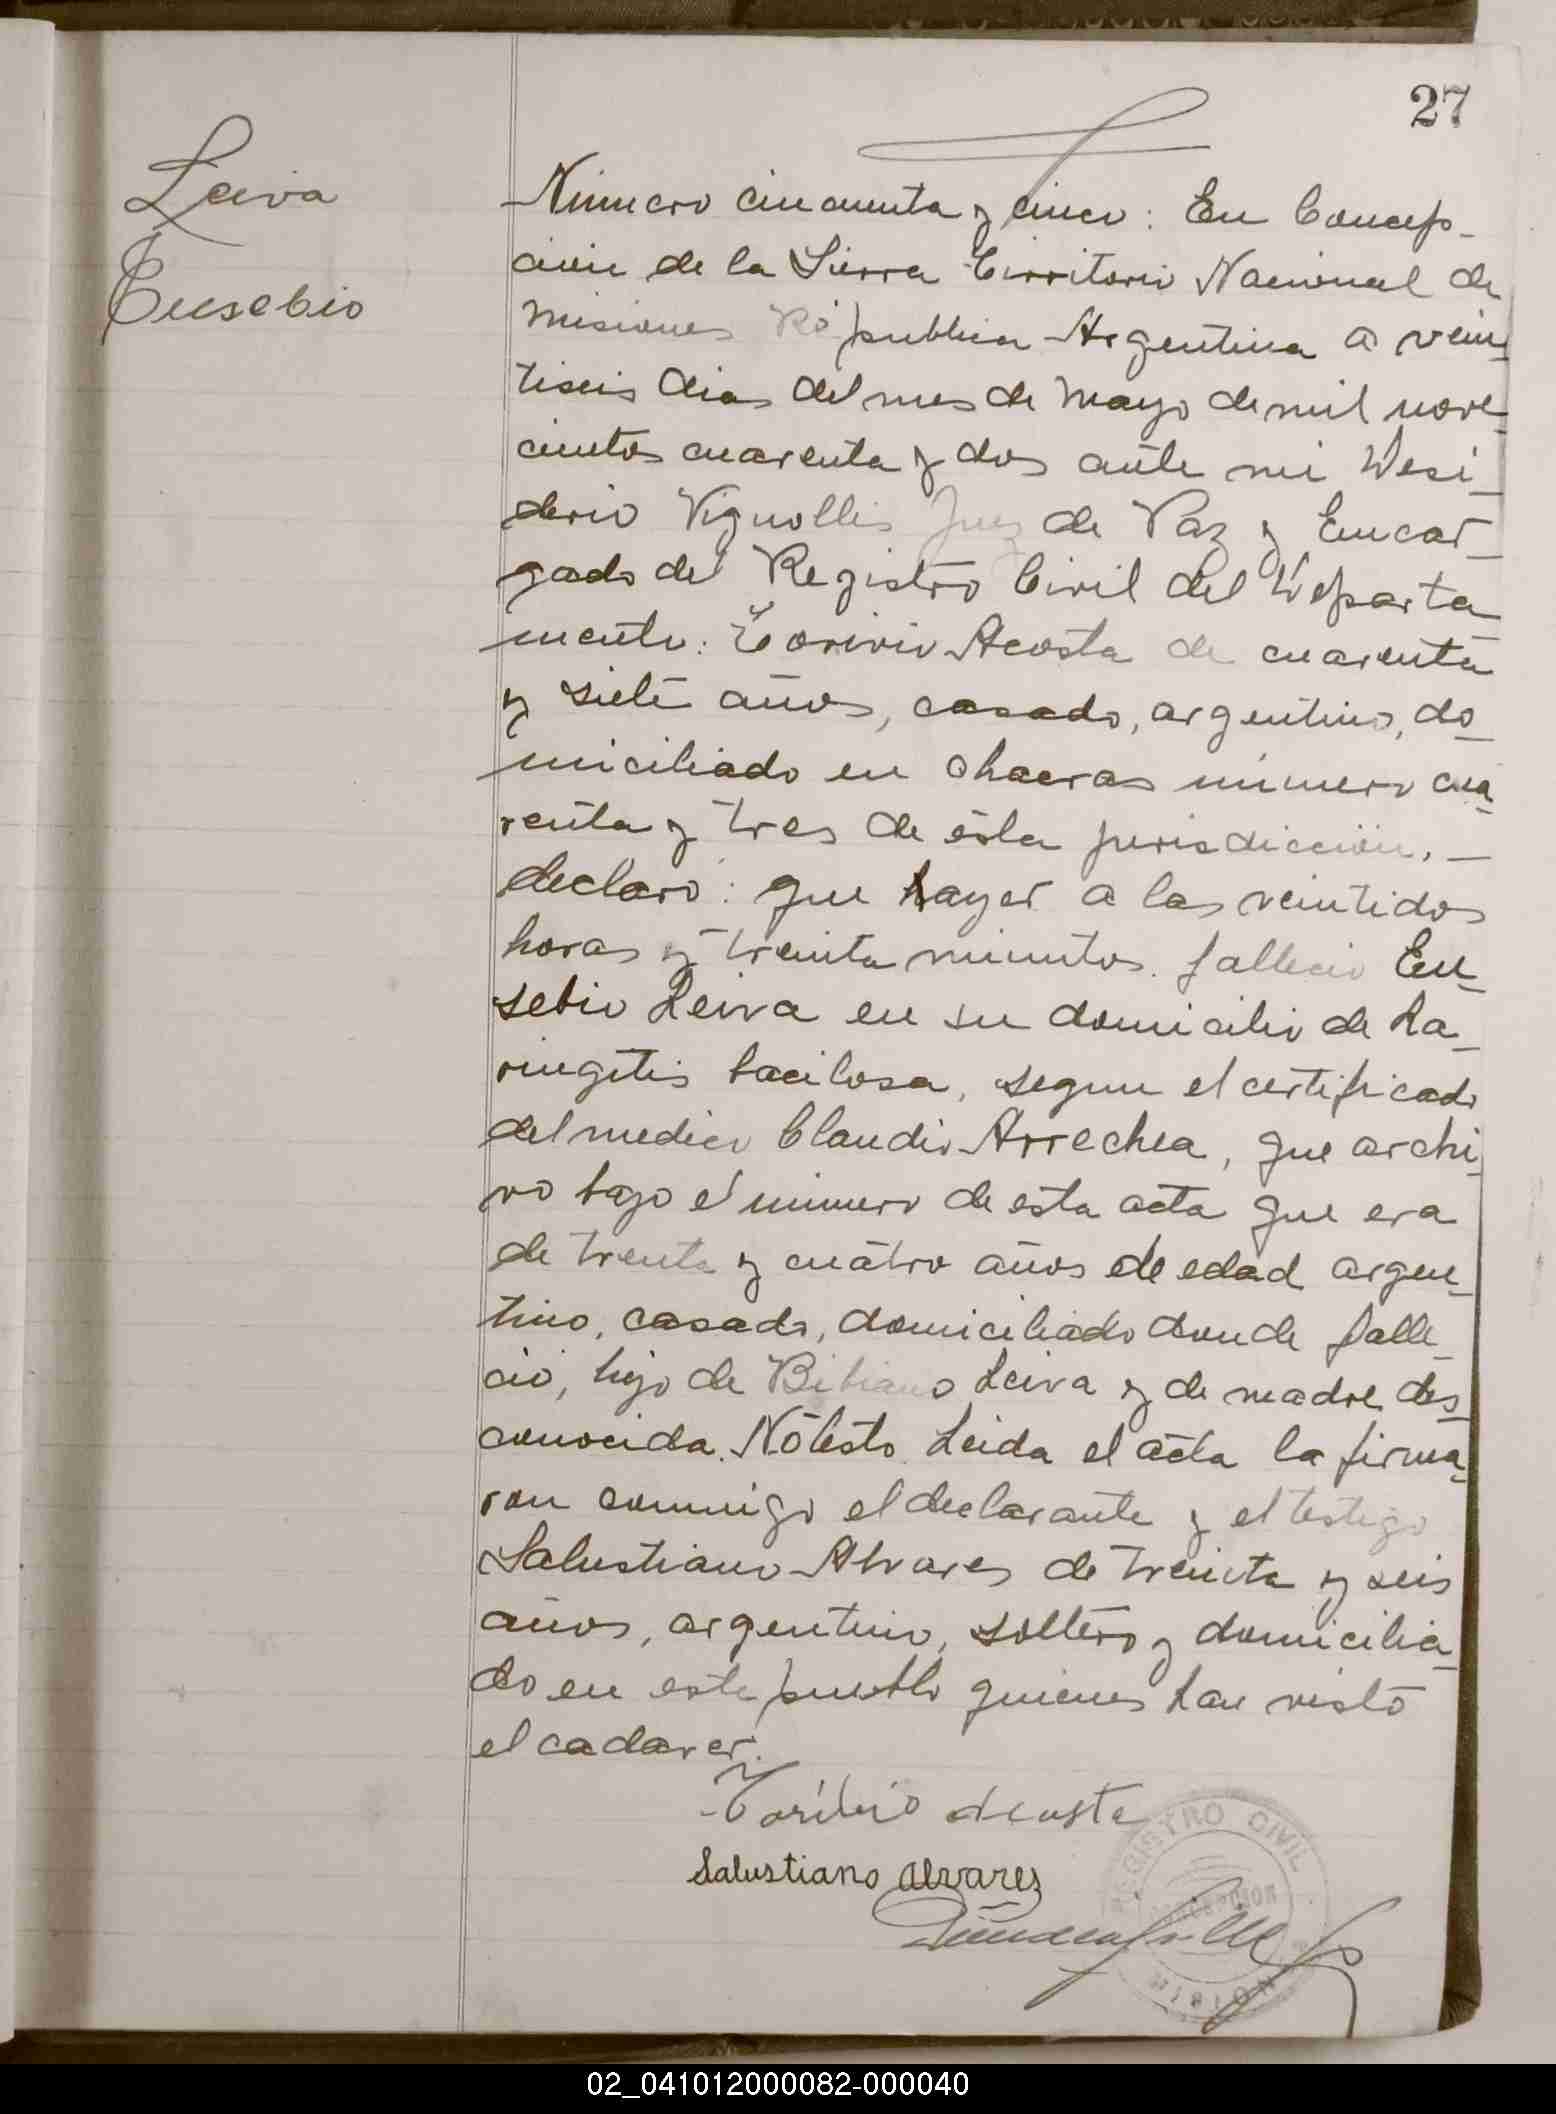 27
Leiva
Eusebio
Número cincuenta y cinco: En Concep-
ción de la Sierra Territorio Nacional de
Misiones República Argentina a vein-
tiseis dias del mes de Mayo de mil nove-
cientos cuarenta y dos ante mi Desi-
derio Vignolles Juez de Paz y Encar-
gado del Registro Civil del Departa
mento: Torivio Acosta de cuarenta
y siete años, casado, argentino, do-
miciliado en chacras número cua-
renta y tres de ésta jurisdicción, —
declaró: que hayer a las veintidos
horas y treinta minutos falleció Eu-
sebio Leiva en su domicilio de La-
ringitis bacilosa, segun el certificado
del medico Claudio Arrechea, que archi-
vo bajo el número de esta acta que era
de treinta y cuatro años de edad argen-
tino, casado, domiciliado donde falle-
ció, hijo de Bibiano Leiva y de madre des-
conocida. Nó testó. Leida el acta la firma-
ron conmigo el declarante y el testigo
Salustiano Alvares de treinta y seis
años, argentino, soltero y domicilia-
do en este pueblo quienes han visto
el cadaver.
Toribio Acosta
Salustiano Alvarez
REGISTRO CIVIL
CONCEPCION
MISIONES
02_041012000082-000040